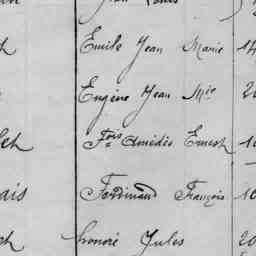 Emile Jean Marie 14
Eugène Jean Mie 2
let Fois Amédée Ernest 1
ais Ferdinand François 10
ch honoré Jules 20